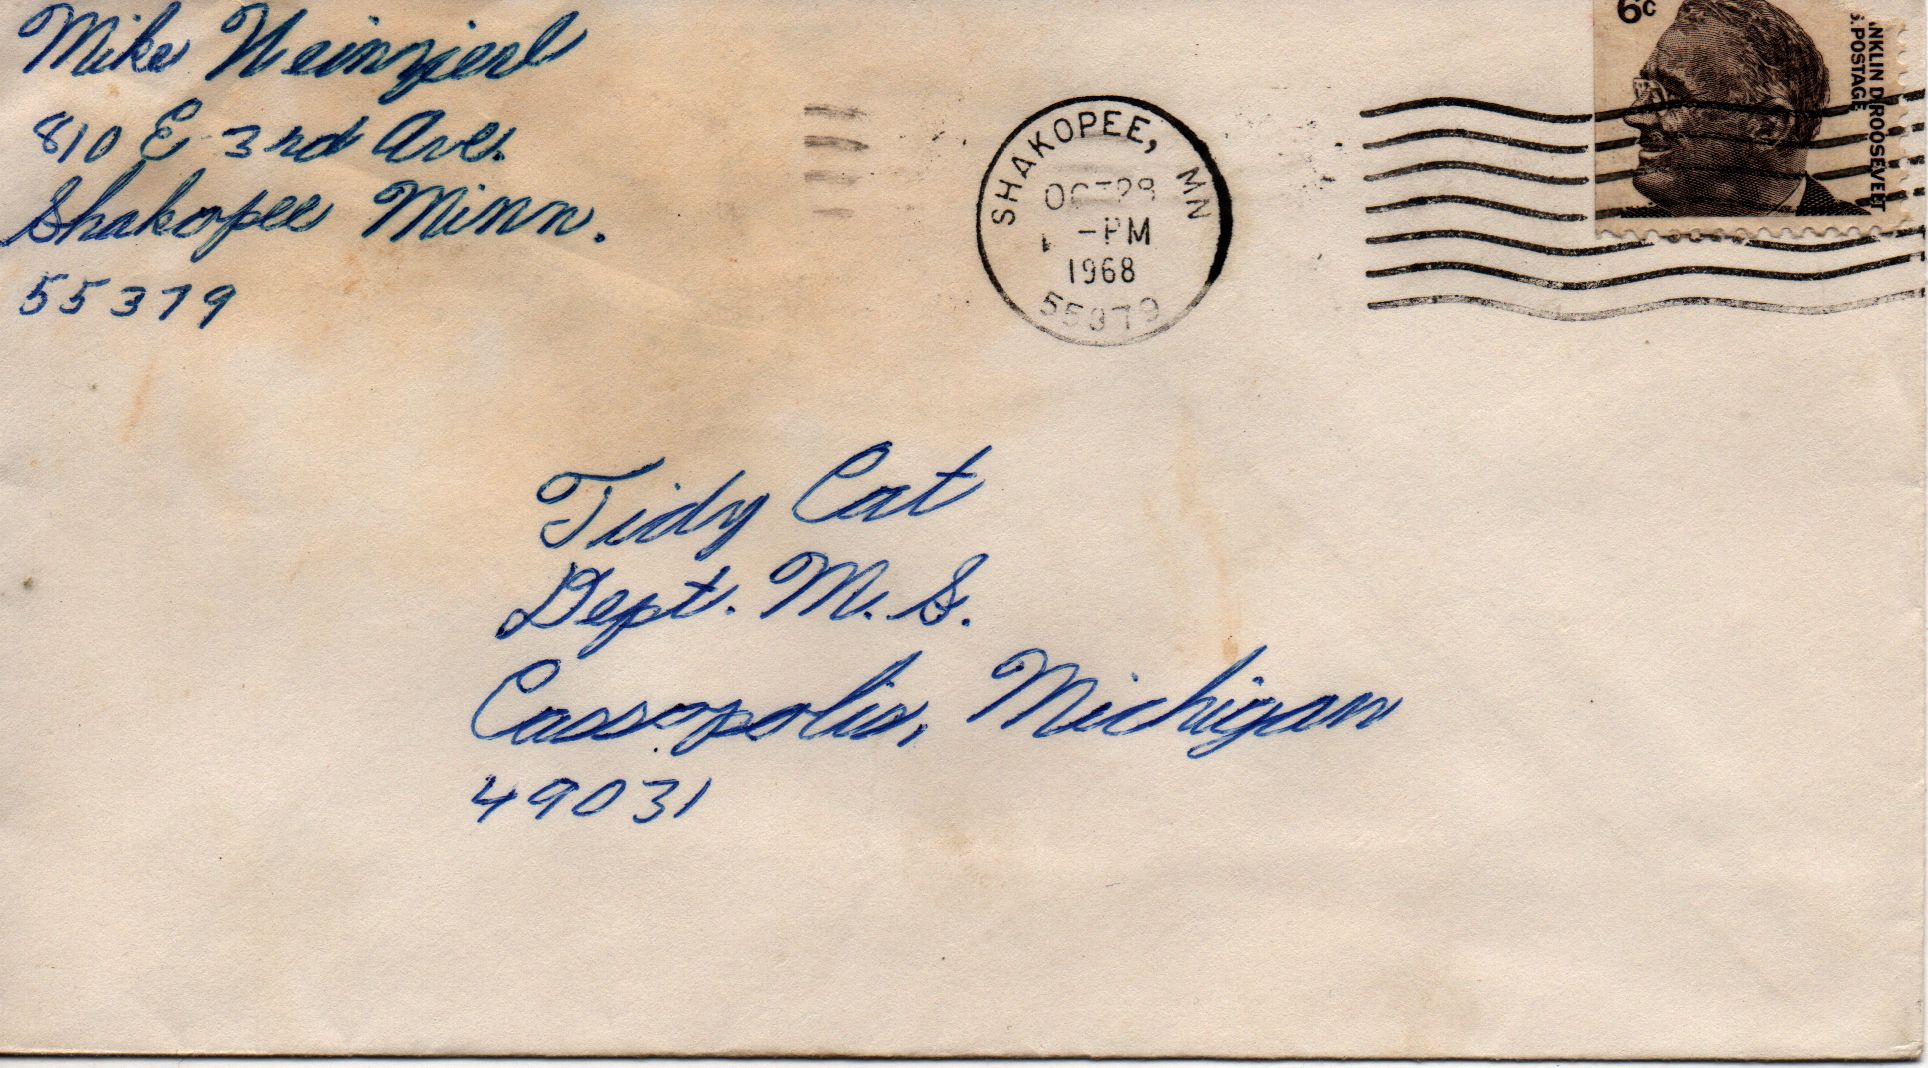 Mike Weinzierl
810 E 3rd Ave.
Shakopee Minn.
55379
SHAKOPEE, MN
OCT 28
-PM
1968
55379
6c
NKLIN D. ROOSEVELT
S. POSTAGE
Tidy Cat
Dept. M. S.
Cassopolis, Michigan
49031